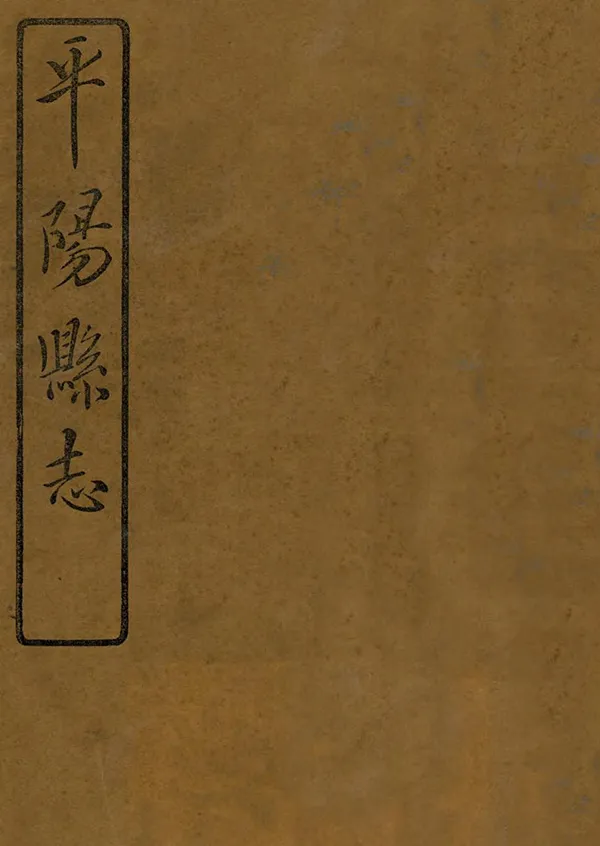 平陽縣志